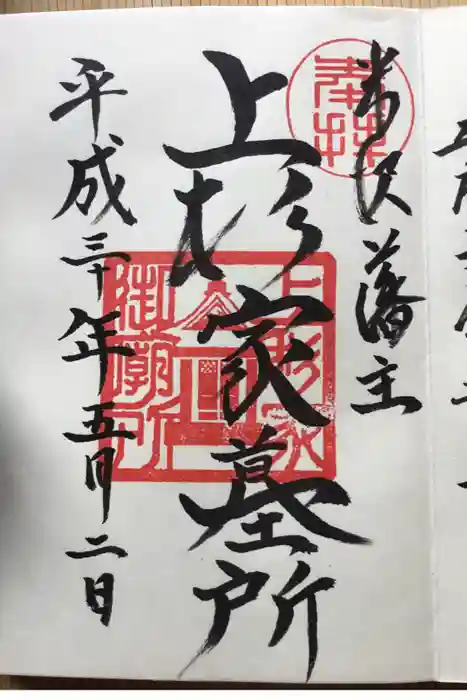 米沢藩主
上杉家墓所
平成三十年五月二日
奉拝
上杉家
御廟所